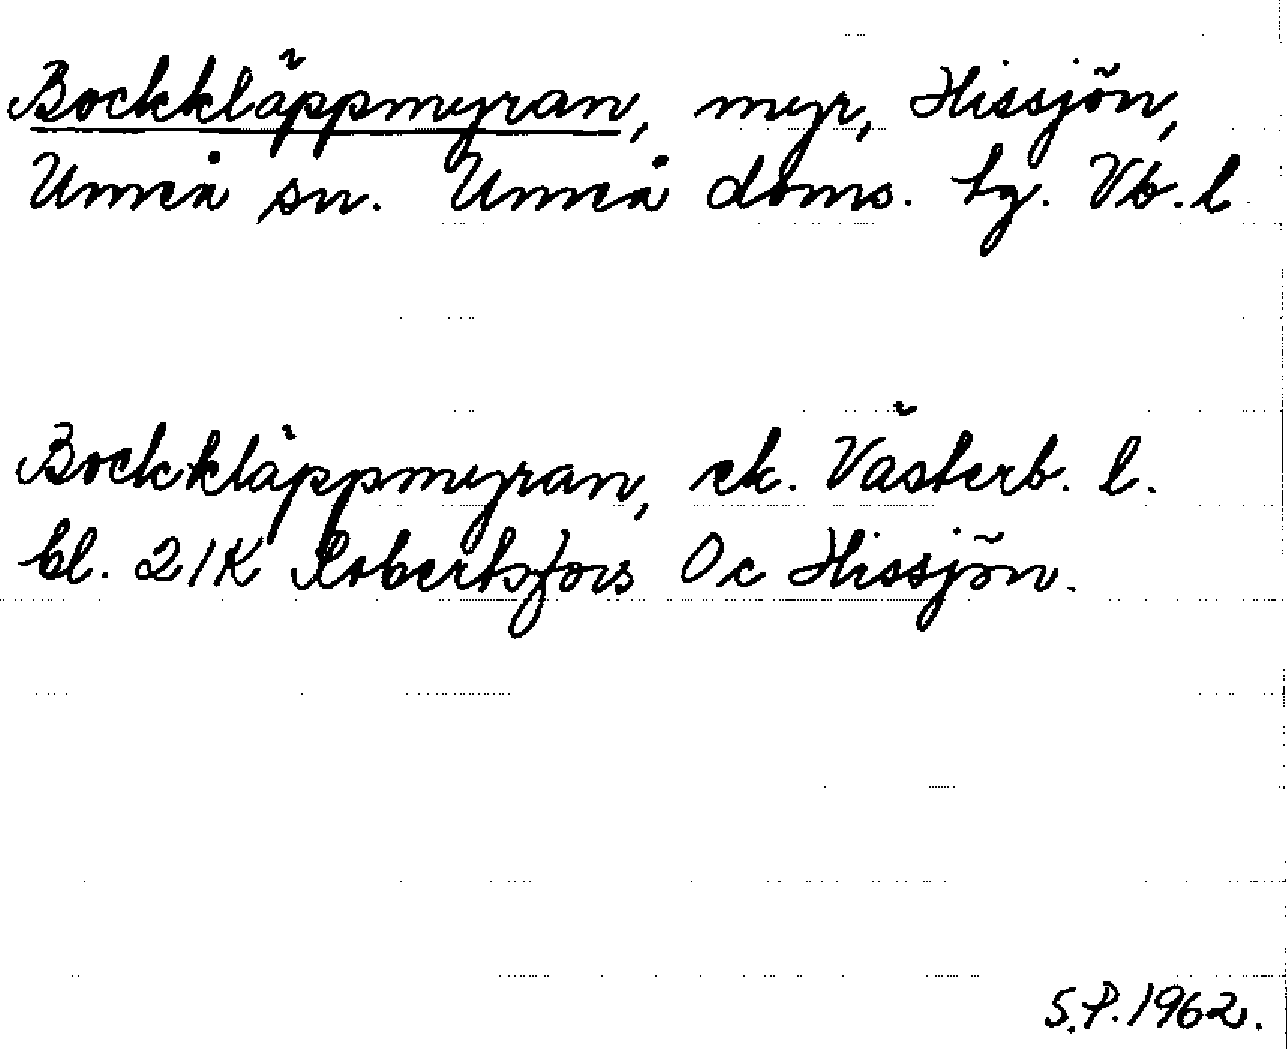 Bockkläppmyran, myr, Hissjön,
Umeå sn. Umeå doms. tg. Vb. l
Bockkläppmyran, ek. Västerb. l.
bl. 21K Robertsfors Oc Hissjön.
S.P. 1962.